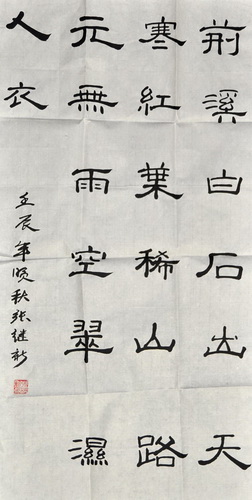 荊溪白石出天
寒紅葉稀山路
元無雨空翠濕
人衣
壬辰年秋张继新